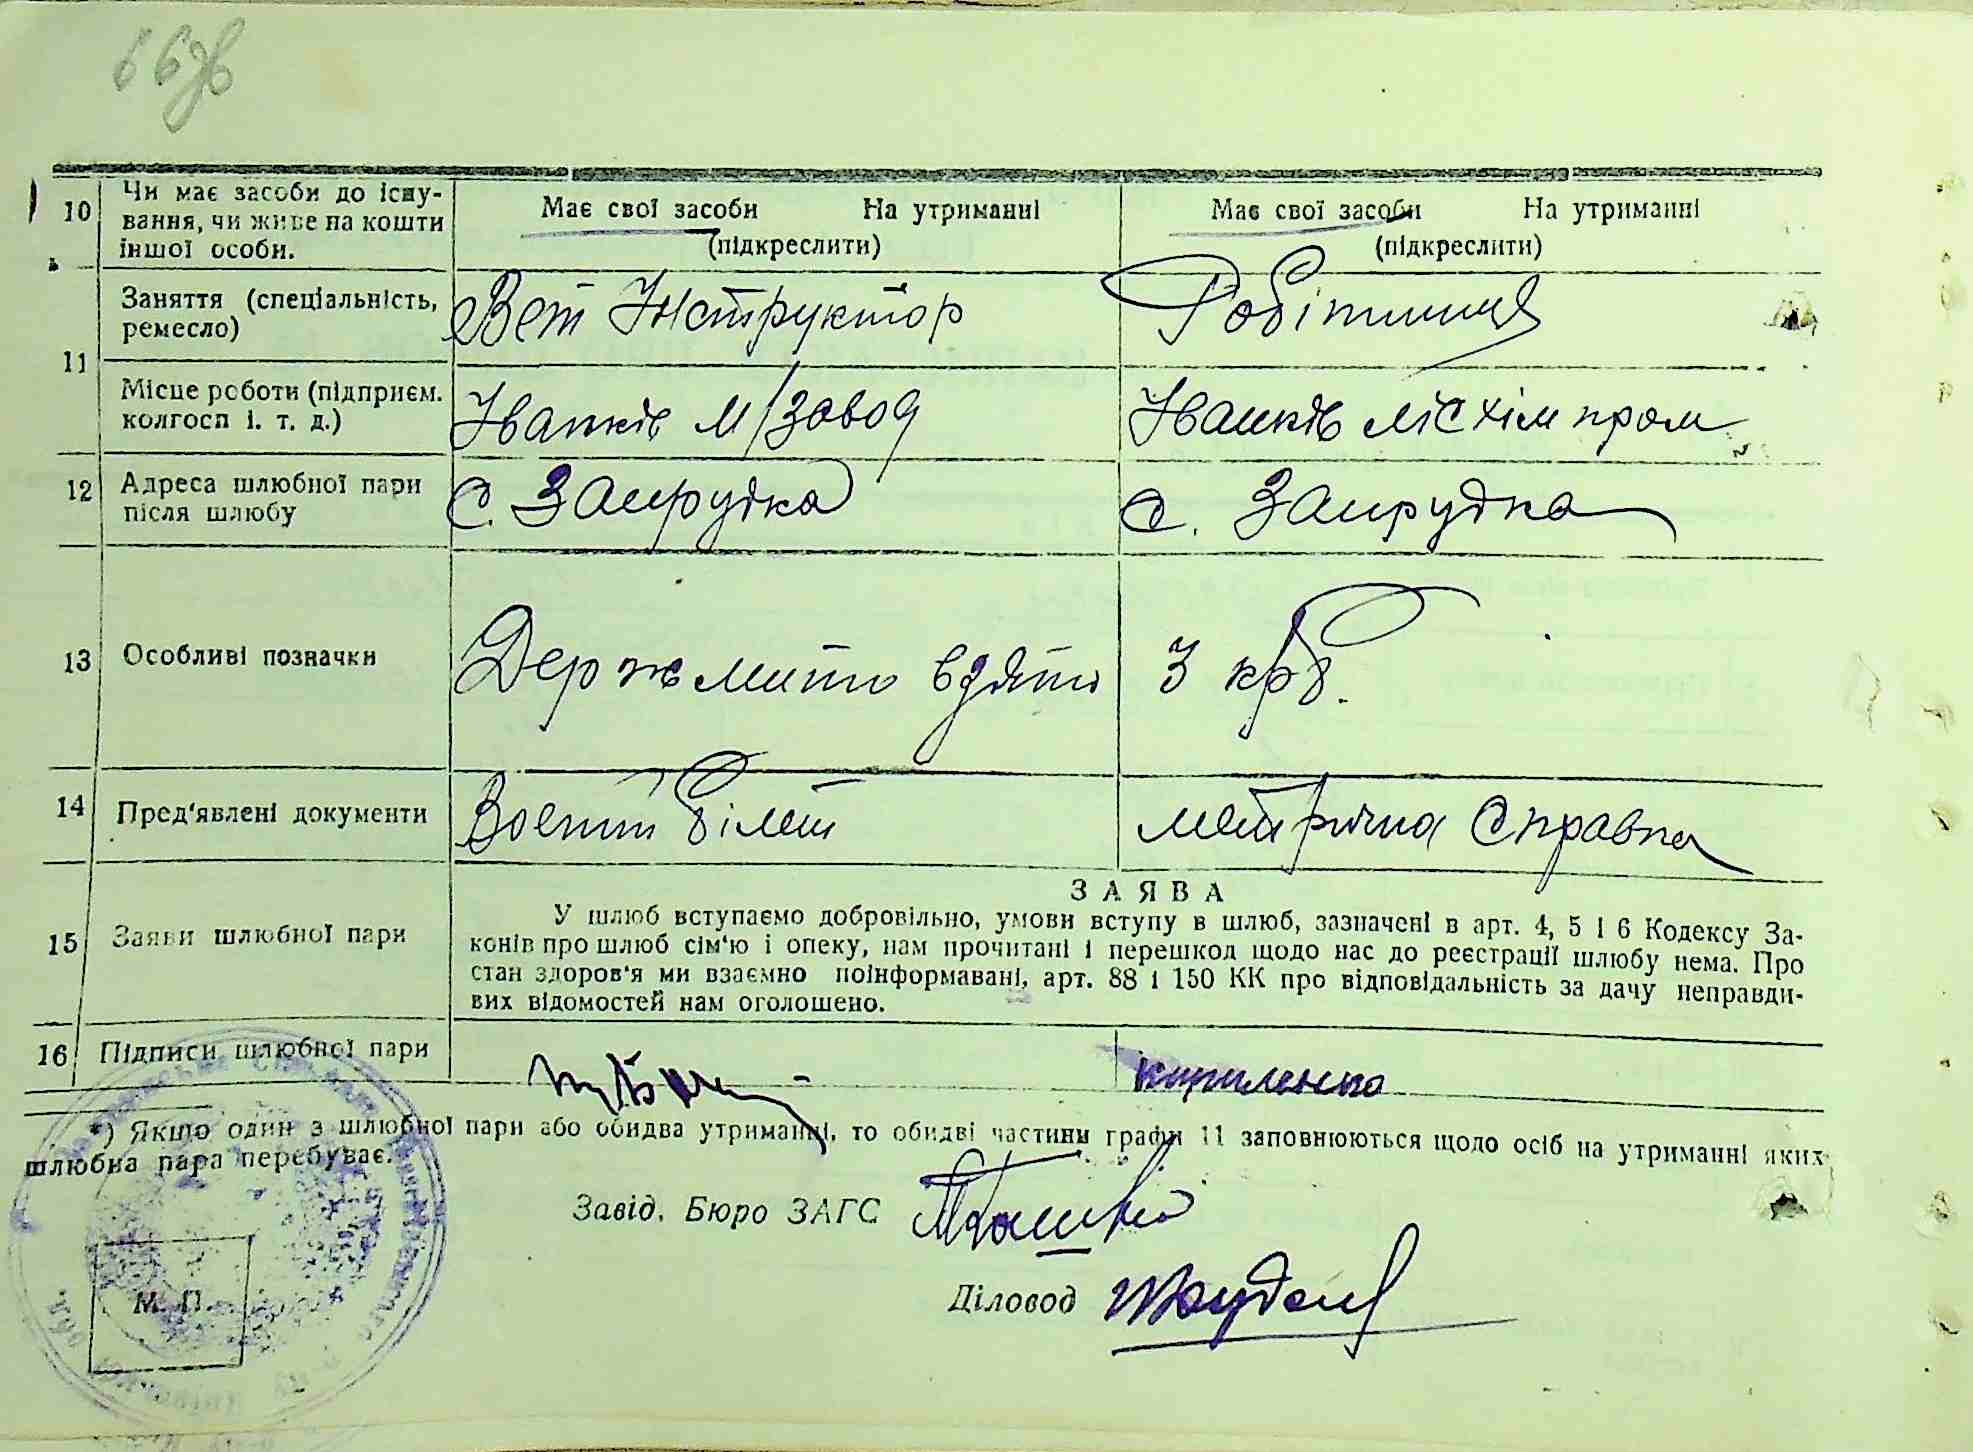 66зв
10 Чи має засоби до існу-
вання, чи живе на кошти
іншої особи.
Має свої засоби На утриманні
(підкреслити)
Має свої засоби На утриманні
(підкреслити)
11 Заняття (спеціальність,
ремесло)
Вет Інструктор
Робітниця
Місце роботи (підприєм.
колгосп і. т. д.)
Іванків М/завод
Іванків лісхімпром
12 Адреса шлюбної пари
після шлюбу
с. Запрудка
с. Запрудка
13 Особливі позначки
Держ мито вдято
3 крб.
14 Пред'явлені документи
Воєнний білет
метрична справка
15 Заяви шлюбної пари
ЗАЯВА
У шлюб вступаємо добровільно, умови вступу в шлюб, зазначені в арт. 4, 5 і 6 Кодексу За-
конів про шлюб сім'ю і опеку, нам прочитані і перешкод щодо нас до реєстрації шлюбу нема. Про
стан здоров'я ми взаємно поінформавані, арт. 88 і 150 КК про відповідальність за дачу неправди-
вих відомостей нам оголошено.
16 Підписи шлюбної пари
Кириленко
*) Якщо один з шлюбної пари або обидва утриманці, то обидві частини графи 11 заповнюються щодо осіб на утриманні яких
шлюбна пара перебуває.
Завід. Бюро ЗАГС
Діловод
М. П.